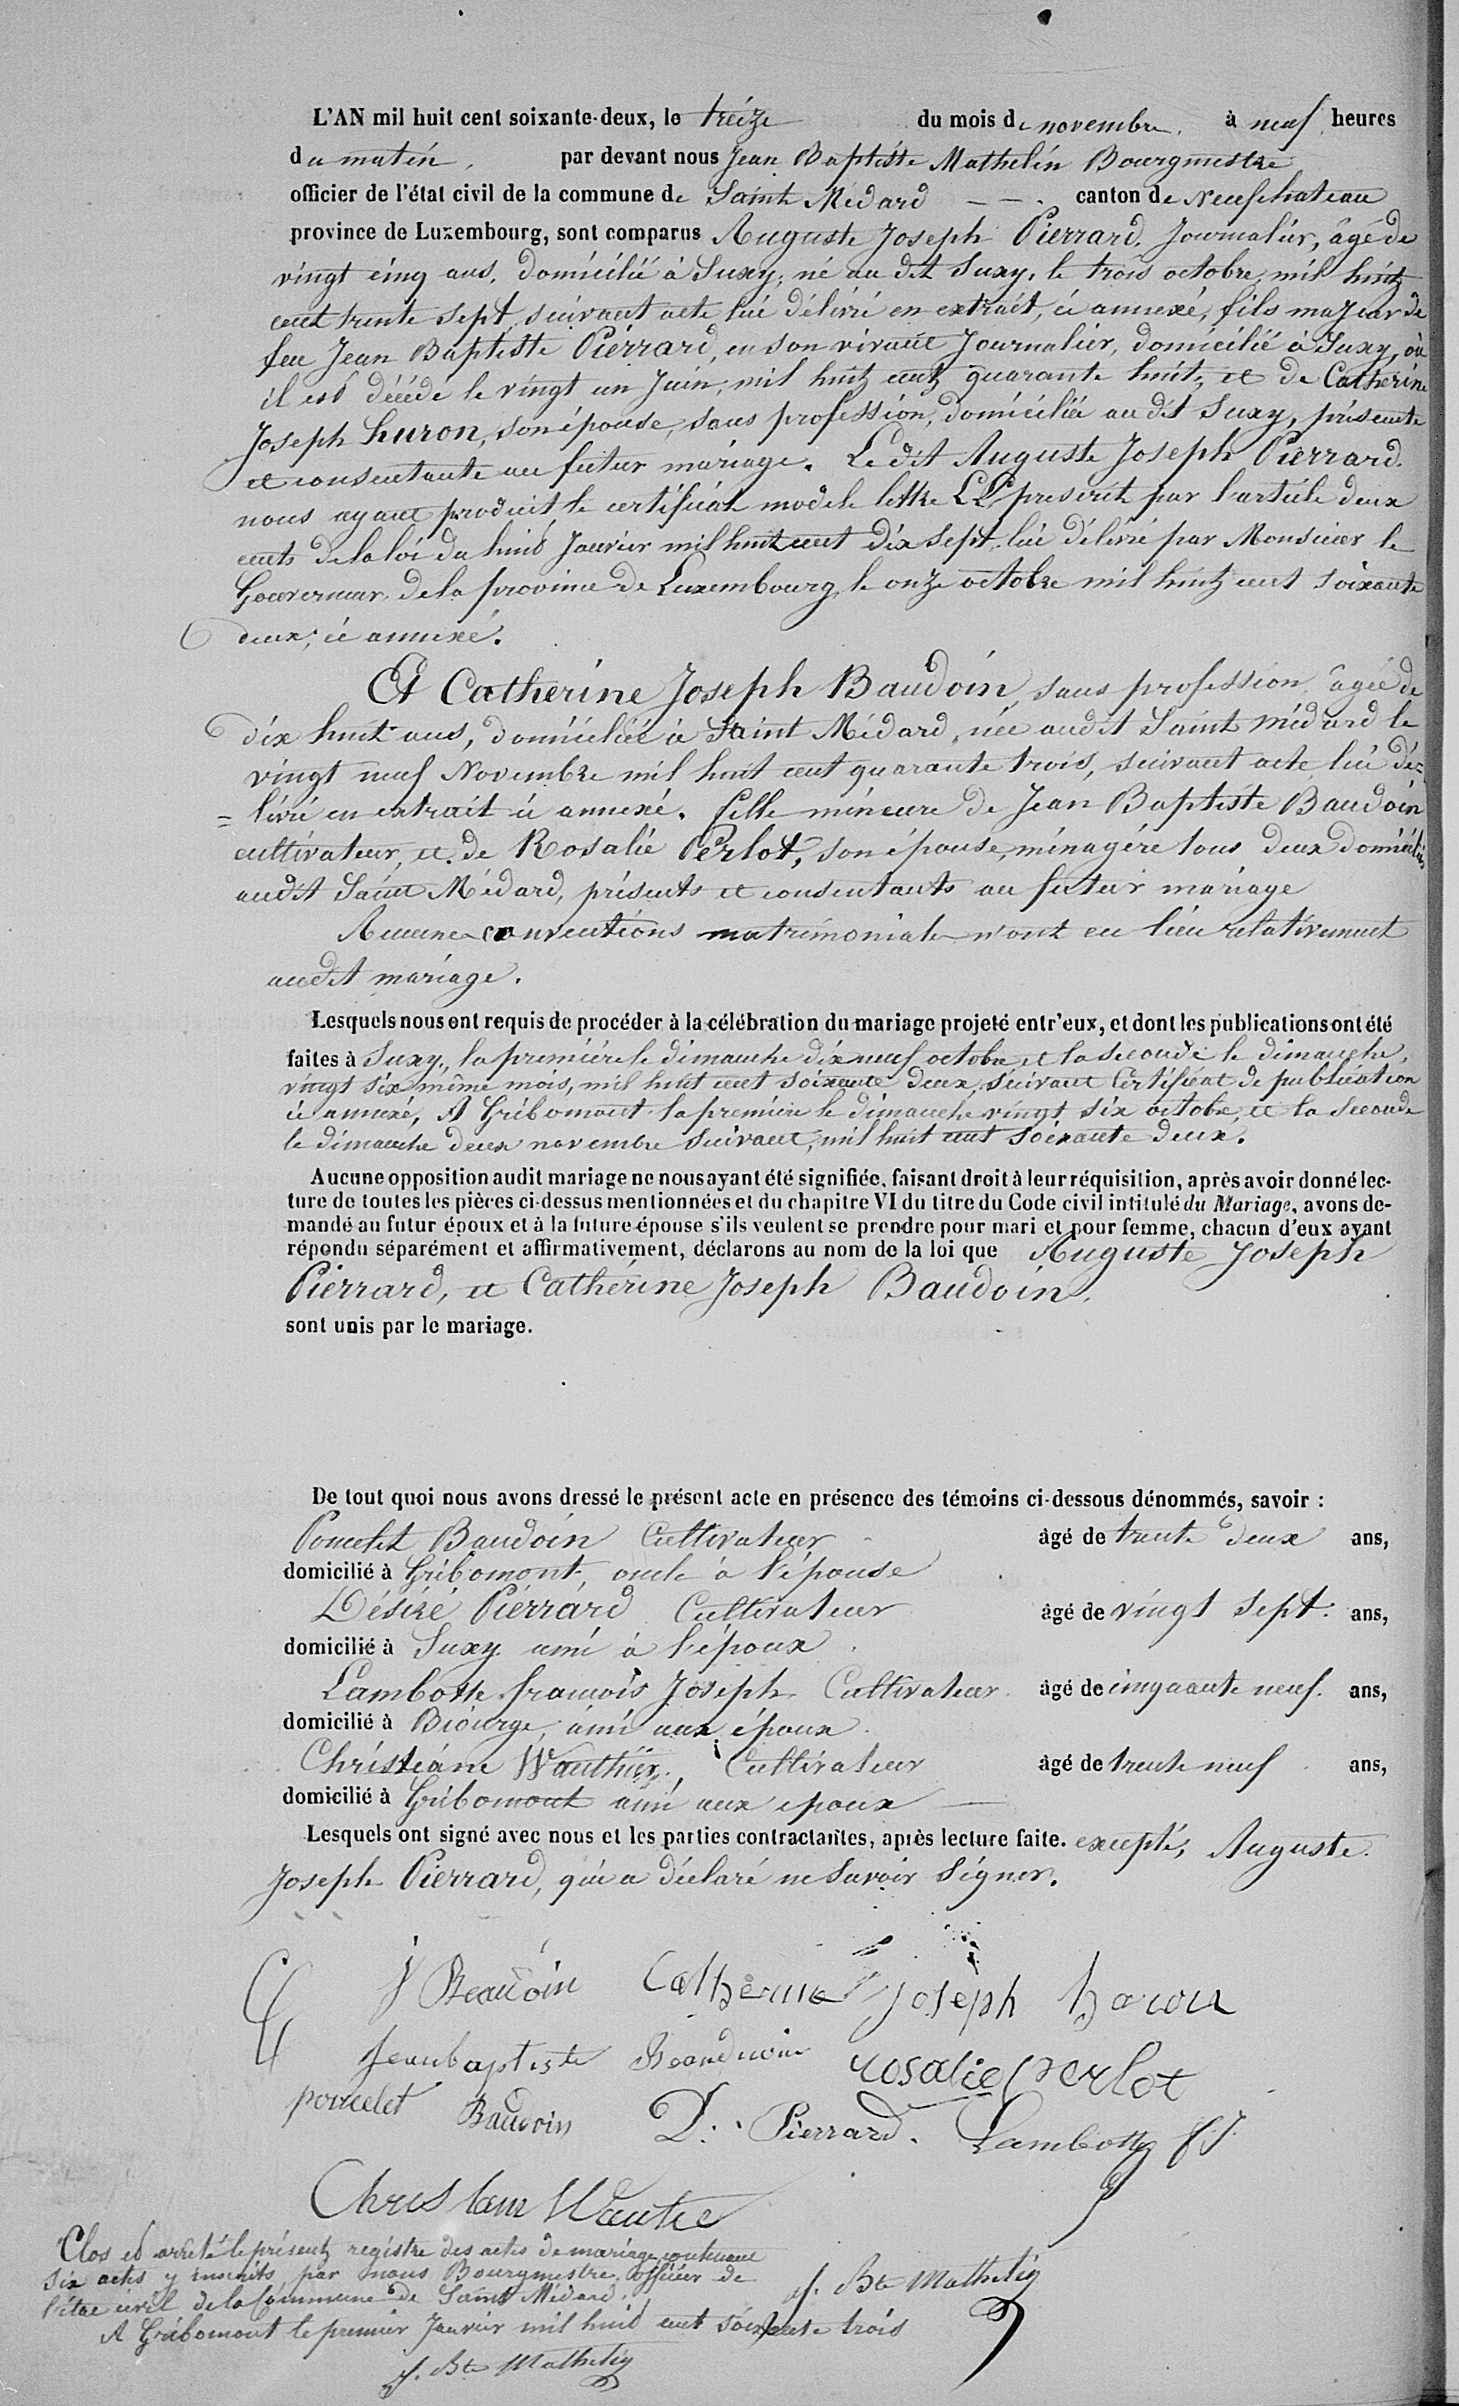 L'AN mil huit cent soixante-deux, le treize du mois de novembre, à neuf heures
du matin, par devant nous Jean Baptiste Mathelin Bourgmestre
officier de l'état civil de la commune de Saint Médard — — . canton de Neufchateau
province de Luxembourg, sont comparus Auguste Joseph Pierrard, Journalier, âgé de
vingt cinq ans, domicilié à Suxy, né au dit Suxy, le trois octobre mil huit
cent trente sept, suivant acte lui délivré en extrait, ci annexé, fils majeur de
feu Jean Baptiste Pierrard, en son vivant Journalier, domicilié à Suxy, où
il est décédé le vingt un Juin, mil huit cent quarante huit, et de Catherine
Joseph huron, son épouse, sans profession, domiciliée au dit Suxy, présente
et consentante au futur mariage. Le dit Auguste Joseph Pierrard
nous ayant produit le certificat modele lettre LL prescrit par l'article deux
cents de la loi du huit Janvier mil huit cent dix sept, lui délivré par Monsieur le
Gouverneur de la province de Luxembourg, le onze octobre mil huit cent soixante
deux, ci annexé.
Et Catherine Joseph Baudoin, sans profession, âgée de
dix huit ans, domiciliée à Saint Médard, née audit Saint Médard le
vingt neuf Novembre mil huit cent quarante trois, suivant acte lui dé=
= livré en extrait ci annexé. fille mineure de Jean Baptiste Baudoin
cultivateur, et de Rosalie Perlot, son épouse, ménagére tous deux domiciliés
audit Saint Médard, présents et consentants au futur mariage
Aucune conventions matrimoniale n'ont eu lieu relativement
audit mariage.
Lesquels nous ont requis de procéder à la célébration du mariage projeté entr'eux, et dont les publications ont été
faites à Suxy, la première le dimanche dix neuf octobre, et la seconde le dimanche,
vingt six même mois, mil huit cent soixante deux, suivant Certificat de publication
ci annexé, A Gribomont la première le dimanche vingt six octobre, et la seconde
le dimanche deux novembre suivant, mil huit cent soixante deux.
Aucune opposition audit mariage ne nous ayant été signifiée, faisant droit à leur réquisition, après avoir donné lec-
ture de toutes les pièces ci-dessus mentionnées et du chapitre VI du titre du Code civil intitulé du Mariage, avons de-
mandé au futur époux et à la future épouse s'ils veulent se prendre pour mari et pour femme, chacun d'eux ayant
répondu séparément et affirmativement, déclarons au nom de la loi que Auguste Joseph
Pierrard, et Cathérine Joseph Baudoin,
sont unis par le mariage.
De tout quoi nous avons dressé le présent acte en présence des témoins ci-dessous dénommés, savoir :
Poncelet Baudoin Cultivateur âgé de trente deux ans,
domicilié à Gribomont, oncle à l'épouse
Désiré Pierrard Cultivateur âgé de vingt sept. ans,
domicilié à Suxy ami à l'époux
Lambotte françois Joseph Cultivateur âgé de cinquante neuf. ans,
domicilié à Biourge, ami aux époux
Christiane Wauthier, Cultivateur âgé de trente neuf ans,
domicilié à Gribomont ami aux epoux —
Lesquels ont signé avec nous et les parties contractantes, après lecture faite. excepté, Auguste
Joseph Pierrard, qui a déclaré ne savoir signer.
J Beaudoin Catherine Joseph huron
Jeanbaptiste Beauduoin rosalie Perlot
poncelet Baudoin D. Pierrard. Lambotte f. J.
Christian Wautie
Clos et arrêté le présent registre des actes de mariage contenant
six actes y inscrits par nous Bourgmestre officier de
l'état civil de la Commune de Saint Médard.
A Gribomont le premier Janvier mil huit cent soixante trois
J. Bte Mathelin
J. Bte Mathelin